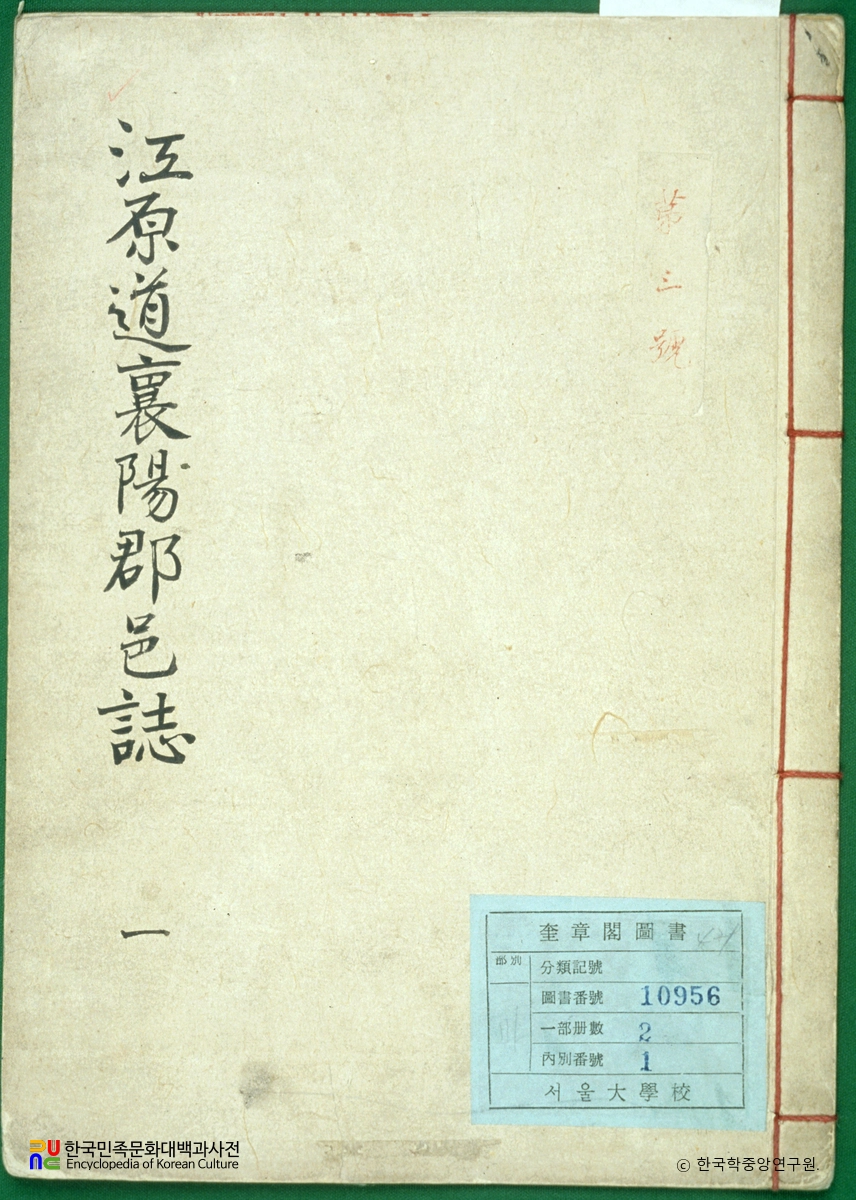 江原道襄陽郡邑誌 一
第三號
奎章閣圖書
部別
分類記號
圖書番號 10956
一部册數 2
內別番號 1
서울大學校
한국민족문화대백과사전
Encyclopedia of Korean Culture
© 한국학중앙연구원.